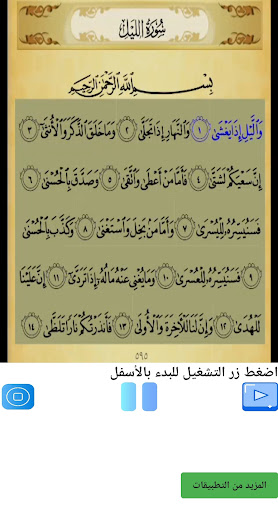 سُورَةُ اللَّيْلِ
بِسْمِ اللَّهِ الرَّحْمَٰنِ الرَّحِيمِ
وَالَّيْلِ إِذَا يَغْشَىٰ ١ وَالنَّهَارِ إِذَا تَجَلَّىٰ ٢ وَمَا خَلَقَ الذَّكَرَ وَالْأُنثَىٰ ٣
إِنَّ سَعْيَكُمْ لَشَتَّىٰ ٤ فَأَمَّا مَنْ أَعْطَىٰ وَاتَّقَىٰ ٥ وَصَدَّقَ بِالْحُسْنَىٰ ٦
فَسَنُيَسِّرُهُ لِلْيُسْرَىٰ ٧ وَأَمَّا مَن بَخِلَ وَاسْتَغْنَىٰ ٨ وَكَذَّبَ بِالْحُسْنَىٰ
٩ فَسَنُيَسِّرُهُ لِلْعُسْرَىٰ ١٠ وَمَا يُغْنِي عَنْهُ مَالُهُ إِذَا تَرَدَّىٰ ١١ إِنَّ عَلَيْنَا
لَلْهُدَىٰ ١٢ وَإِنَّ لَنَا لَلْآخِرَةَ وَالْأُولَىٰ ١٣ فَأَنذَرْتُكُمْ نَارًا تَلَظَّىٰ ١٤
٥٩٥
اضغط زر التشغيل للبدء بالأسفل
المزيد من التطبيقات